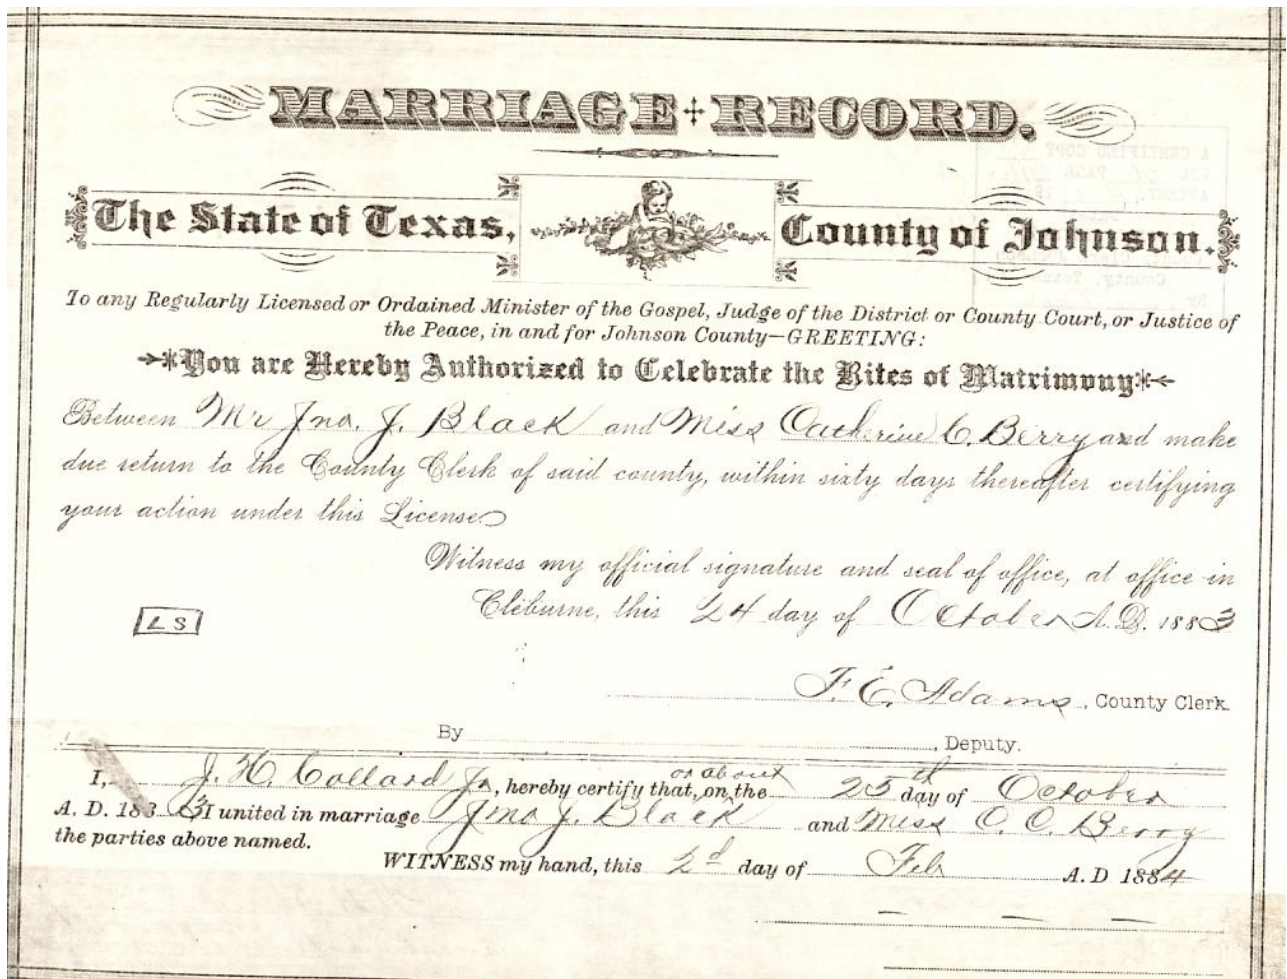 MARRIAGE + RECORD.
The State of Texas, County of Johnson.
To any Regularly Licensed or Ordained Minister of the Gospel, Judge of the District or County Court, or Justice of
the Peace, in and for Johnson County—GREETING:
You are Hereby Authorized to Celebrate the Rites of Matrimony
Between Mr Jno. J. Black and Miss Catherine C. Berry and make
due return to the County Clerk of said county, within sixty days thereafter certifying
your action under this License
Witness my official signature and seal of office, at office in
Cleburne, this 24 day of October A.D. 1883
L S
F. E. Adams, County Clerk.
By , Deputy.
I, J. H. Collard Jr, hereby certify that, on or about the 25th day of October
A. D. 1883 I united in marriage Jno J. Black and Miss C. C. Berry
the parties above named.
WITNESS my hand, this 2d day of Feb A. D 1884
A CERTIFIED COPY
VOL PAGE
ATTEST
County, Texas
By